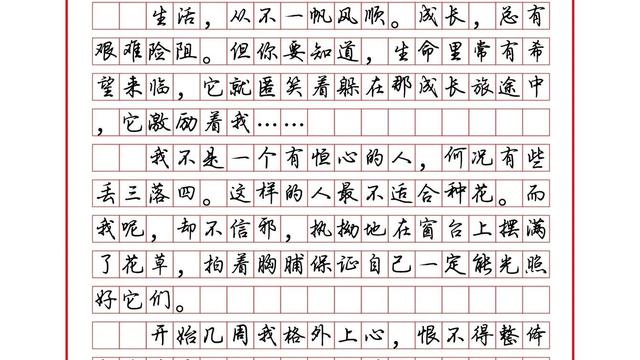 生活，从不一帆风顺。成长，总有
艰难险阻。但你要知道，生命里常有希
望来临，它就匿笑着躲在那成长旅途中
，它激励着我……
我不是一个有恒心的人，何况有些
丢三落四。这样的人最不适合种花。而
我呢，却不信邪，执拗地在窗台上摆满
了花草，拍着胸脯保证自己一定能光照
好它们。
开始几周我格外上心，恨不得整体